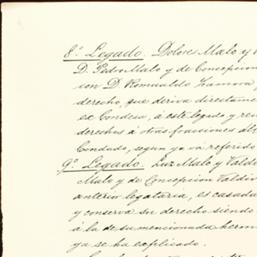 8º Legado. Dolores Malo y V
D. Pedro Malo y de Concepcion
con D. Romualdo Zamora y
derecho, que deriva directamen
ex Condesa, á este legado y re
derechos á otras fracciones del
Condado, segun ya vá referido
9º Legado. Luz Malo y Valdi
Malo y de Concepcion Valdiv
anterior legataria, es casada
y conserva su derecho siendo
á la de su mencionada herm
ya se ha explicado.